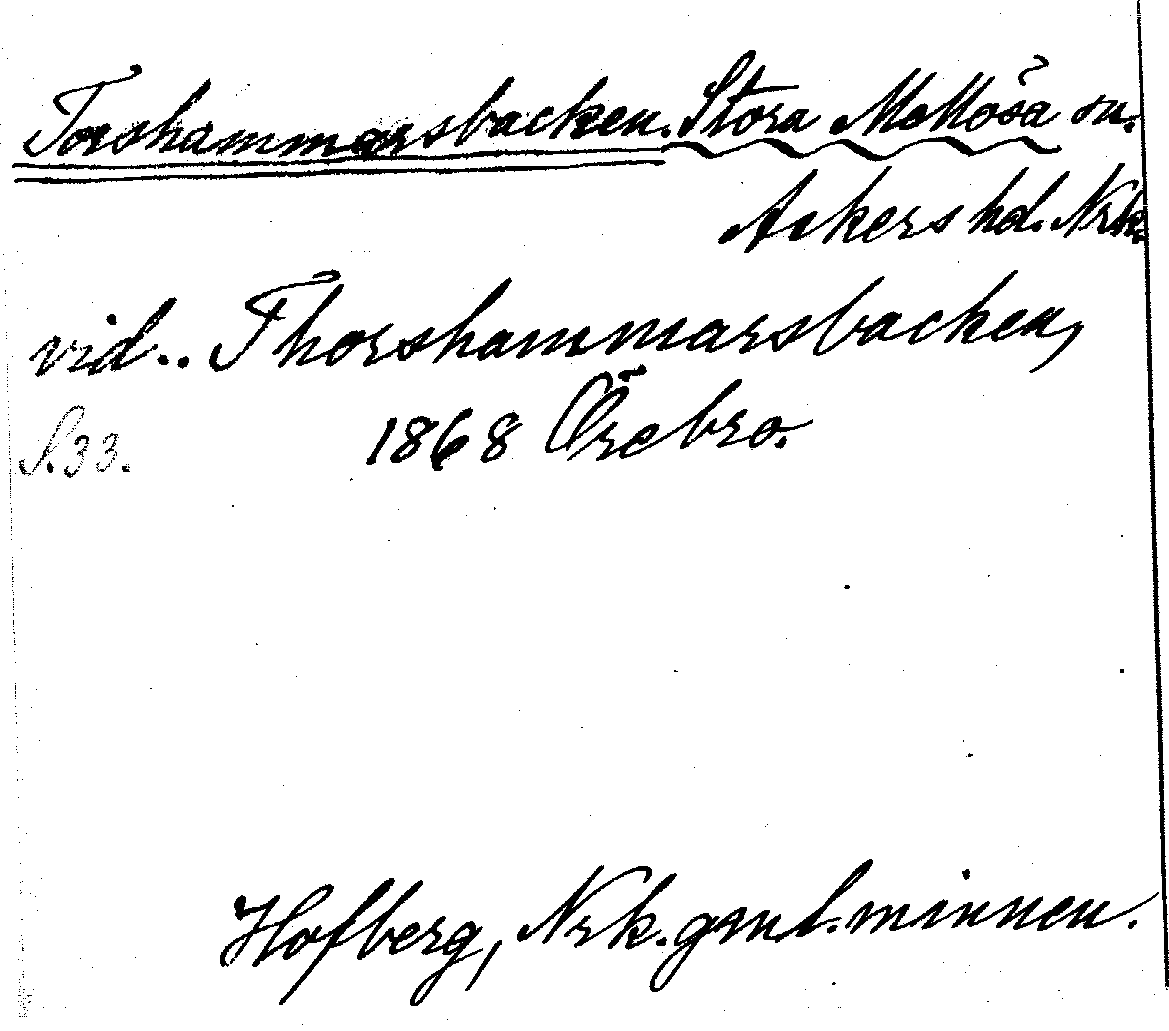 Torshammarsbacken. Stora Mellösa sn.
Askers hd. Nrk.
vid.. Thorshammarsbacken,
S. 33. 1868 Örebro.
Hofberg, Nrk. gml. minnen.